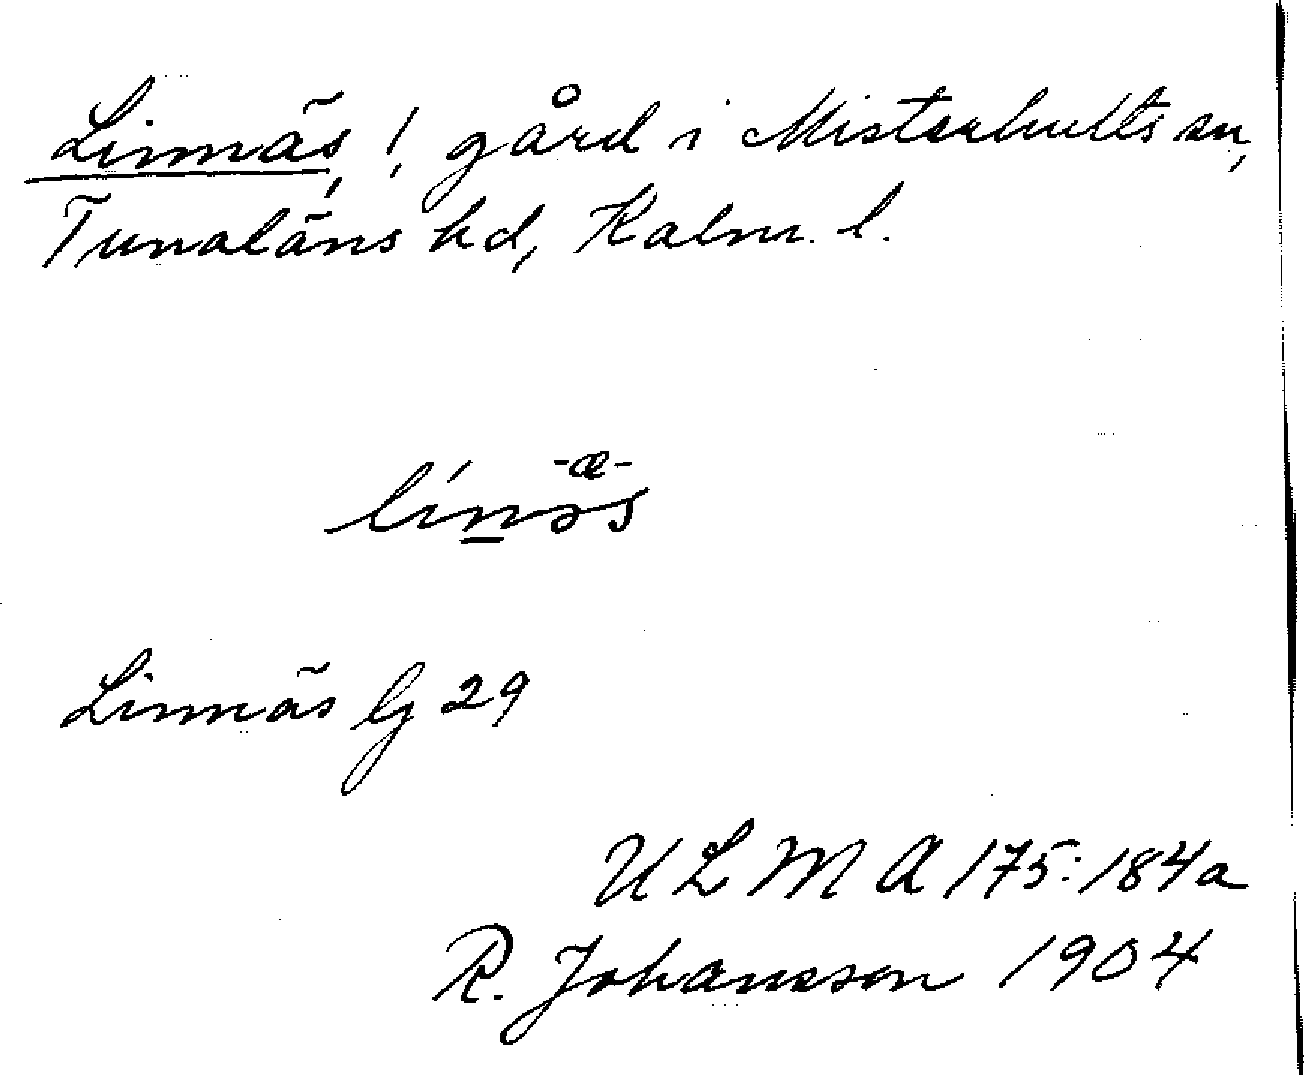 Linnäs, !, gård i Misterhults sn,
Tunaläns hd, Kalm. l.
-æ-
línəs
Linnäs lj 29
ULMA 175:184a
R. Johansson 1904